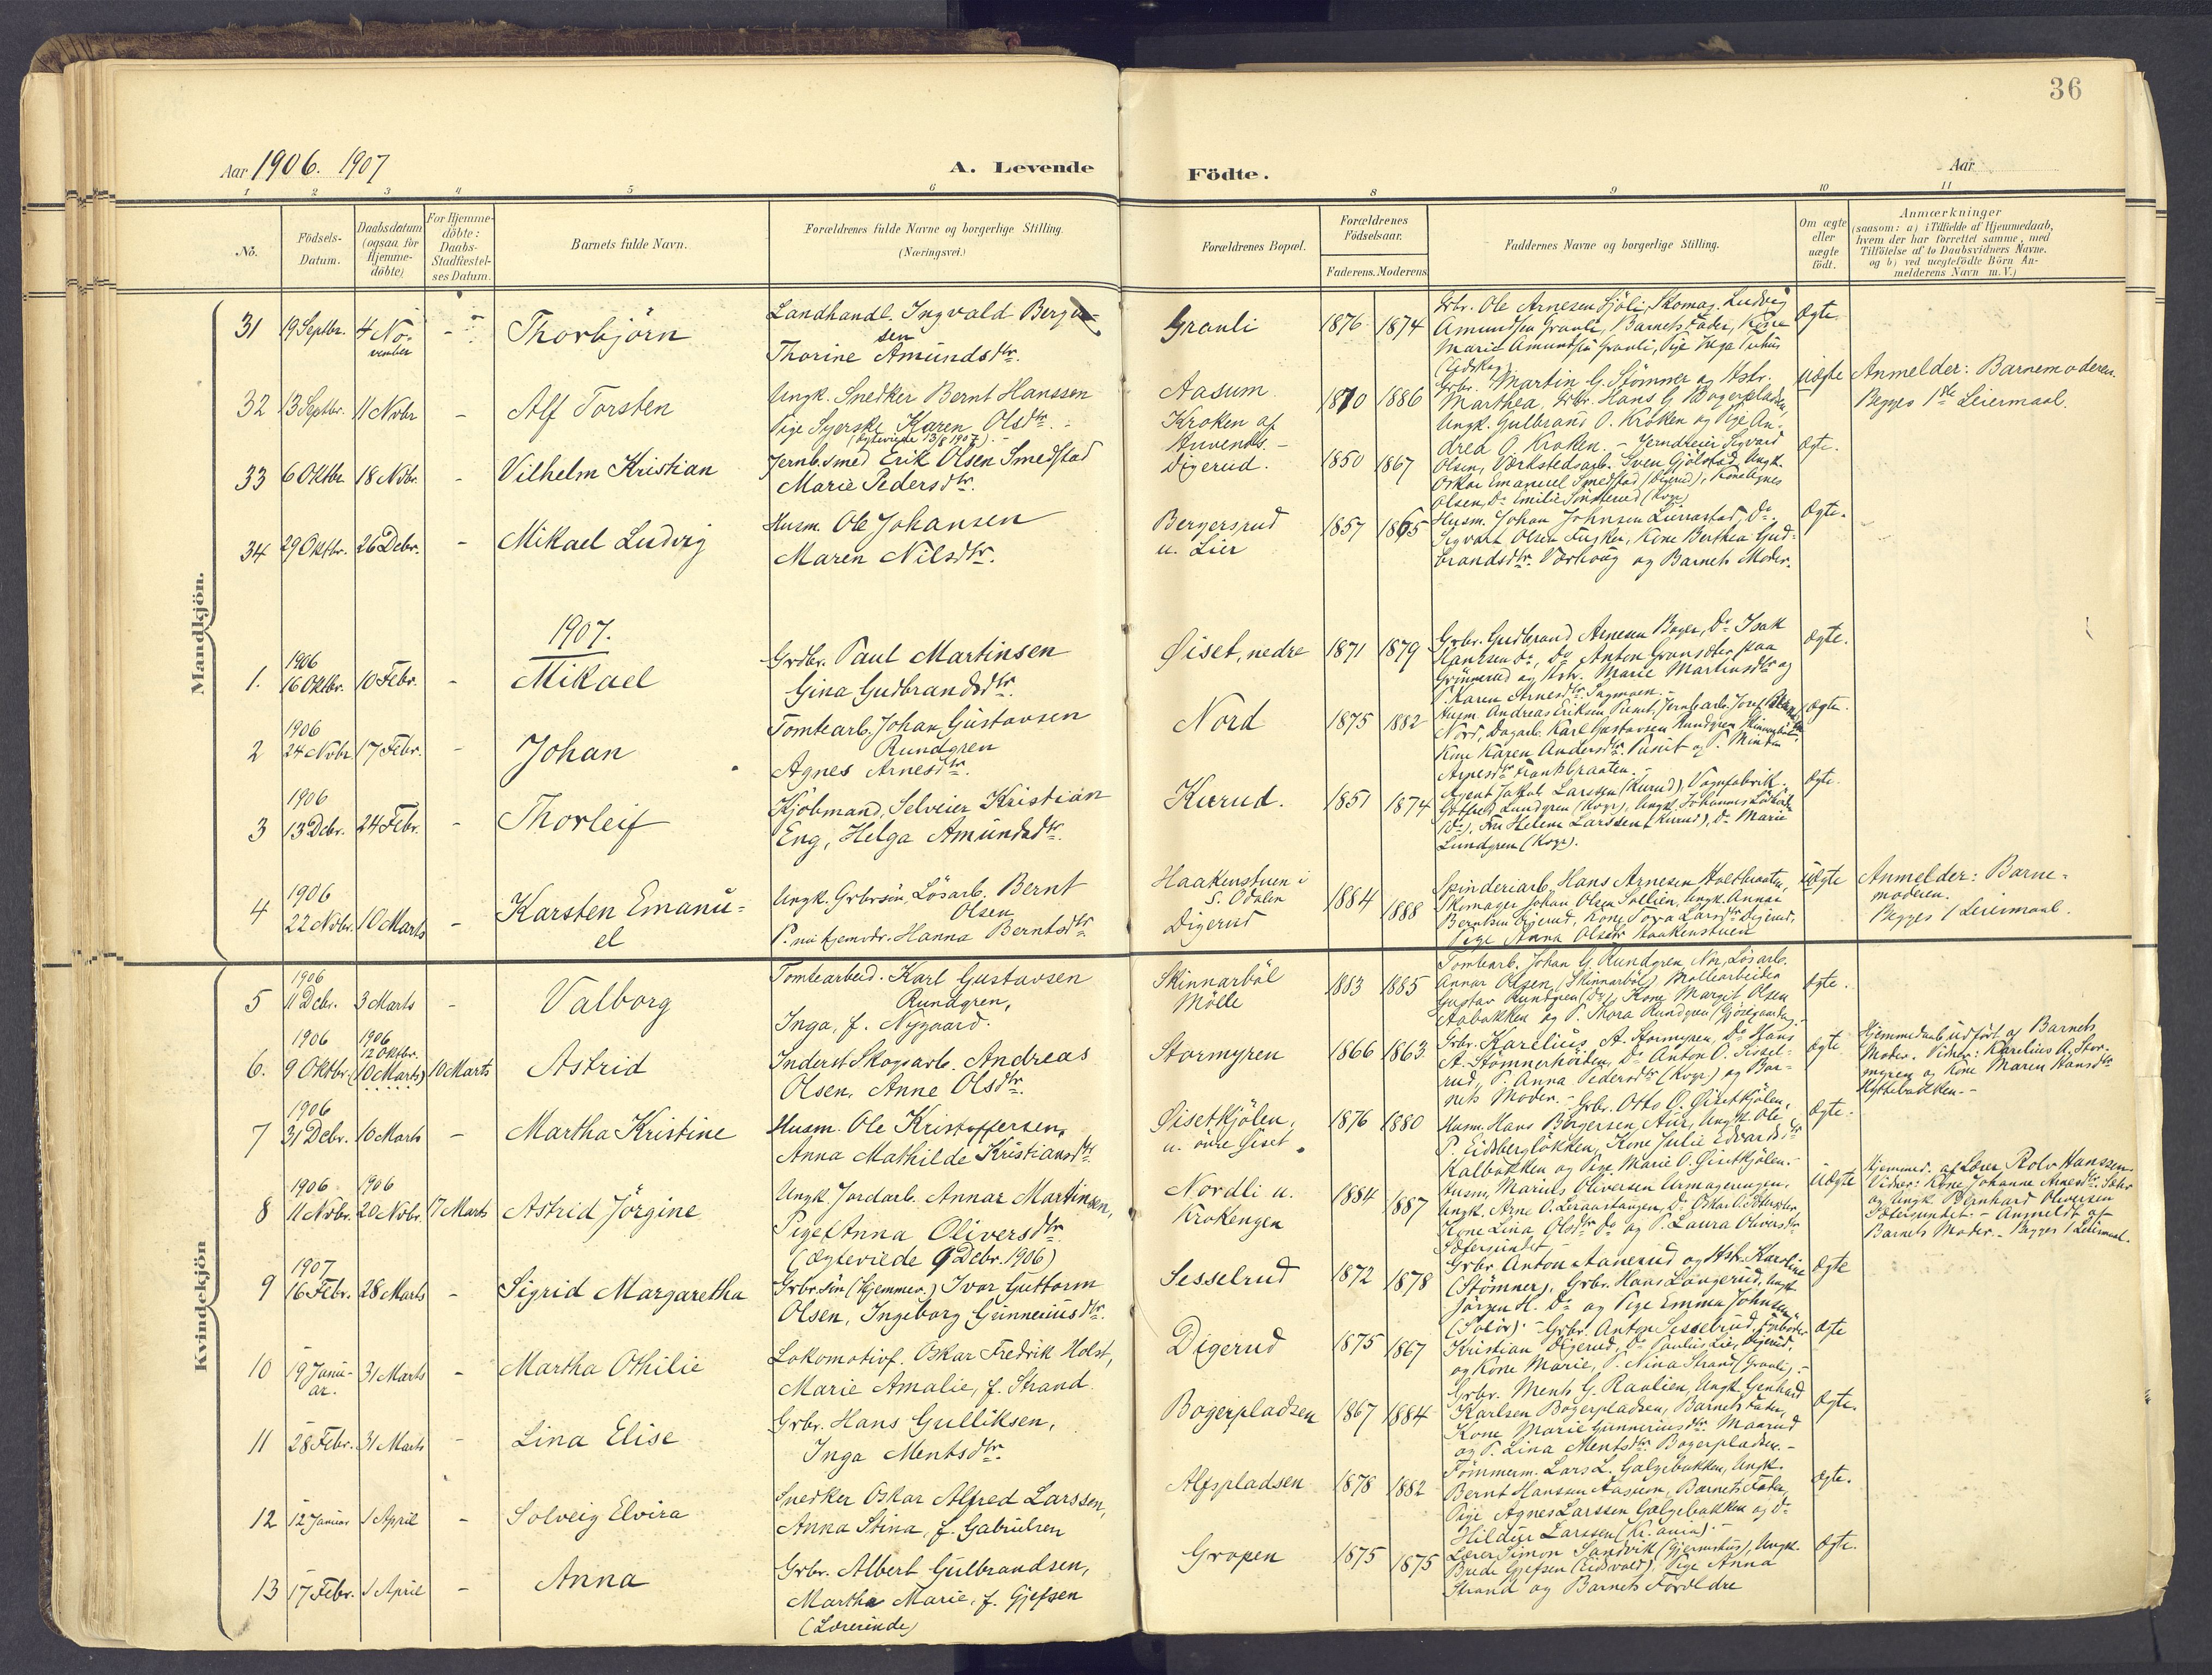 36
Aar 1906. 1907
A. Levende
Födte.
Aar
1 2 3 4 5 6 8 9 10 11
No.
Födsels-Datum.
Daabsdatum (ogsaa for Hjemme-döbte)
For Hjemme-döbte: Daabs-Stadfæstel-ses Datum.
Barnets fulde Navn.
Forældrenes fulde Navne og borgerlige Stilling. (Næringsvei.)
Forældrenes Bopæl.
Forældrenes Födselsaar.
Faderens. Moderens
Faddernes Navne og borgerlige Stilling.
Om ægte eller uægte födt.
Anmærkninger
(saasom: a) i Tilfælde af Hjemmedaab, hvem der har forrettet samme, med Tilföielse af to Daabsvidners Navne. og b) ved uægtefödte Börn An-melderens Navn m.V.)
Mandkjön.
31 19 Septbr. 4 No-vember - Thorbjörn
Landhandl. Ingvald Berger-sen
Thorine Amundsdtr.
Grauli 1876 1874
Grbr. Ole Arnesen Sjöli, Skomag. Ludvig
Amundsen Grauli, Barnets Fader, Kone
Marie Amundsen Grauli, Pige
(Eidskog)
ægte
32 13 Septbr. 11 Novbr - Alf Torsten
Ungk. Snedker Bernt Hanssen
Pige Syerske Karen Olsdtr.
(Ægteviede 13/8 1907). -
Aasum
Kroken af
1870 1886
Grbr. Martin G. Stömner og Hstr.
Marthea, Grbr. Hans G Bogerpladsen,
Ungk. Gulbrand O. Kroken og Pige An-
drea O. Kroken. -
uægte
Anmelder: Barnemoderen.
Begges 1ste Leiermaal.
33 6 Oktbr 18 Nvbr. - Vilhelm Kristian
Jernb.smed Erik Olsen Smedstad
Marie Pedersdtr.
Digerud. 1850 1867
Gjerndreier Sigvard
Olsen, Værkstedsarb. Sven Gjölstad, Ungk.
Oskar Emanuel Smedstad (Digerud), Kone Agnes
Olsen, Do Emilie (Kvgr)
ægte.
34 29 Oktbr. 26 Debr. - Mikael Ludvig
Husm. Ole Johansen
Maren Nilsdtr.
Bergersrud
u. Lier
1857 1865
Husm. Johan Johnsen Do
Sigvart Olsen Kone Berthea Gud-
brandsdtr. og Barnets Moder.
ægte.
1907.
1. 1906 16 Oktbr. 10 Febr. - Mikael
Grdbr. Paul Martinsen
Gina Gudbrandsdtr.
Öiset, nedre 1871 1879
Grbr. Gudbrand Arnesen Boger, Do Isak
Hanssen Do, Do Anton
og Hstr. Marie Martinsdtr og
P. Karen Arnesdtr
ægte.
2 1906 24 Novbr. 17 Febr. - Johan
Tomtearb. Johan Gustavsen
Rundgren
Agnes Arnesdtr.
Nord 1875 1882
Husm. Andreas Eriksen Jernb.arb. Josef
Nord, Dagarb. Karl Gustavsen Rundgren
Kone Karen Andersdtr.
Arnesdtr
ægte.
3 1906 13 Debr. 24 Febr. - Thorleif
Kjöbmand, Selveier Kristian
Eng, Helga Amundsdtr.
Kurud. 1851 1874
Agent Jakob Larssen (Kurud), Vognfabrik.
Lundgren (Kvgr), Ungk. Johannes
(Do), Fru Helene Larssen (Kurud), Do Marie
Lundgren (Kvgr).
ægte.
4 1906 22 Novbr. 10 Marts - Karsten Emanu-
el
Ungk. Grbrsön, Lösarb. Bernt
Olsen
P. nu hjemvr. Hanna Berntsdtr.
Haakenstuen i
S. Odalen
Digerud
1884 1888
Spinderiarb. Hans Arnesen
Skomager Johan Olsen Sollien, Ungk. Annar
Berntsen Digerud, Kone Tova Larsdtr Digerud,
Pige Anna Olsdtr Haakenstuen
uægte
Anmelder: Barne-
moderen.
Begges 1 Leiermaal.
Kvindekjön
5 1906 11 Debr. 3 Marts - Valborg
Tomtearbeid. Karl Gustavsen
Rundgren,
Inga, f. Nygaard.
Skinnarböl
Mölle
1883 1885
Tomtearb. Johan G. Rundgren, Nor, Lösarb.
Annar Olsen, (Skinnarböl) Möllearbeider
Gustav Rundgren (Do), Kone Margit Olsen
Aabakken og P. Thora Rundgren
ægte.
6. 1906 9 Oktbr. 1906 12 Oktbr. (10 Marts) 10 Marts Astrid
Inderst Skogsarb. Andreas
Olsen, Anne Olsdtr.
Stormyren 1866 1863
Grbr. Karelius A. Stormyren, Do Hans
A. Stömnerhöiden, Do Anton O. Sissel-
rud, P. Anna Pedersdtr (Kvgr) og Bar-
nets Moder. -
ægte
Hjemmedaab udfört af Barnets
Moder. Vidner: Karelius A. Stor-
myren og Kone Maren Hansdtr
Hyttebakken. -
7 1906 31 Debr. 10 Marts - Martha Kristine
Husm. Ole Kristoffersen,
Anna Mathilde Kristiansdtr.
Öisetkjölen,
u. övre Öiset.
1876 1880
Grbr. Otto O. Öisetkjölen,
Husm. Hans Börgersen, Aur, Ungk. Ole
P. Eidsberglökken, Kone Julie Edvardsdtr
Kalbakken og Pige Marie O. Öisetkjölen.
ægte.
8 1906 11 Novbr. 1906 20 Novbr. 17 Marts Astrid Jörgine
Ungk. Jordarb. Annar Martinsen,
Pige Anna Oliversdtr.
(Ægteviede 9 Debr. 1906)
Nordli u.
Krokengen
1884 1887
Husm. Marius Oliversen
Ungk. Arne O.
Kone Lina Olsdtr Do og P. Laura Oliversdtr
Sætersundet -
uægte
Hjemmed. af Lærer Rolv Hanssen.
Vidner: Kone Johanne Arnesdtr
og Ungk. Bernhard Oliversen
Sætersundet. - Anmeldt af
Barnets Moder. - Begges 1 Leiermaal.
9 1907 16 Febr. 28 Marts - Sigrid Margaretha
Grbrsön (Hjemmev.) Ivar Guttorm
Olsen, Ingeborg Gunneriusdtr.
Sesselrud 1872 1878
Grbr. Anton og Hstr. Karoline
(Stömner), Grbr. Hans Langerud, Ungk
Jörgen H. Do og Pige Emma Johnsen
(Solör). -
ægte
10 19 Janu-ar. 31 Marts - Martha Othilie
Lokomotivf. Oskar Fredrik Holst,
Marie Amalie, f. Strand.
Digerud 1875 1867
Grbr. Anton Sesselrud,
Kristian Digerud, Do Paulus Lie, Digerud,
og Kone Marie, P. Nina Strand (Grauli). -
ægte
11 28 Febr. 31 Marts - Lina Elise
Grbr. Hans Gulliksen,
Inga Mentsdtr.
Bogerpladsen 1867 1884
Grbr. Ments G. Raulien, Ungk. Genhard
Karlsen Bogerpladsen, Barnets Fader,
Kone Marie Gunneriusdtr. Maarud
og P. Lina Mentsdtr. Bogerpladsen. -
ægte.
12 12 Januar 1 April - Solveig Elvira
Snedker Oskar Alfred Larssen,
Anna Stina, f. Gabrielsen
Alfspladsen 1878 1882
Tömmerm. Lars L. Galgebakken, Ungk.
Bernt Hanssen Aasum, Barnets Fader,
Pige Agnes Larssen Galgebakken og Do
Hildur Larssen (Kr.ania). -
ægte.
13 17 Febr. 1 April - Anna
Grbr. Albert Gulbrandsen,
Martha Marie, f. Gjefsen
(Lærerinde)
Gropen 1875 1875
Lærer Simon Sandvik (Gjermshus), Ungk.
Brede Gjefsen (Eidsvold), Pige Anna
Strand og Barnets Forældre
ægte.